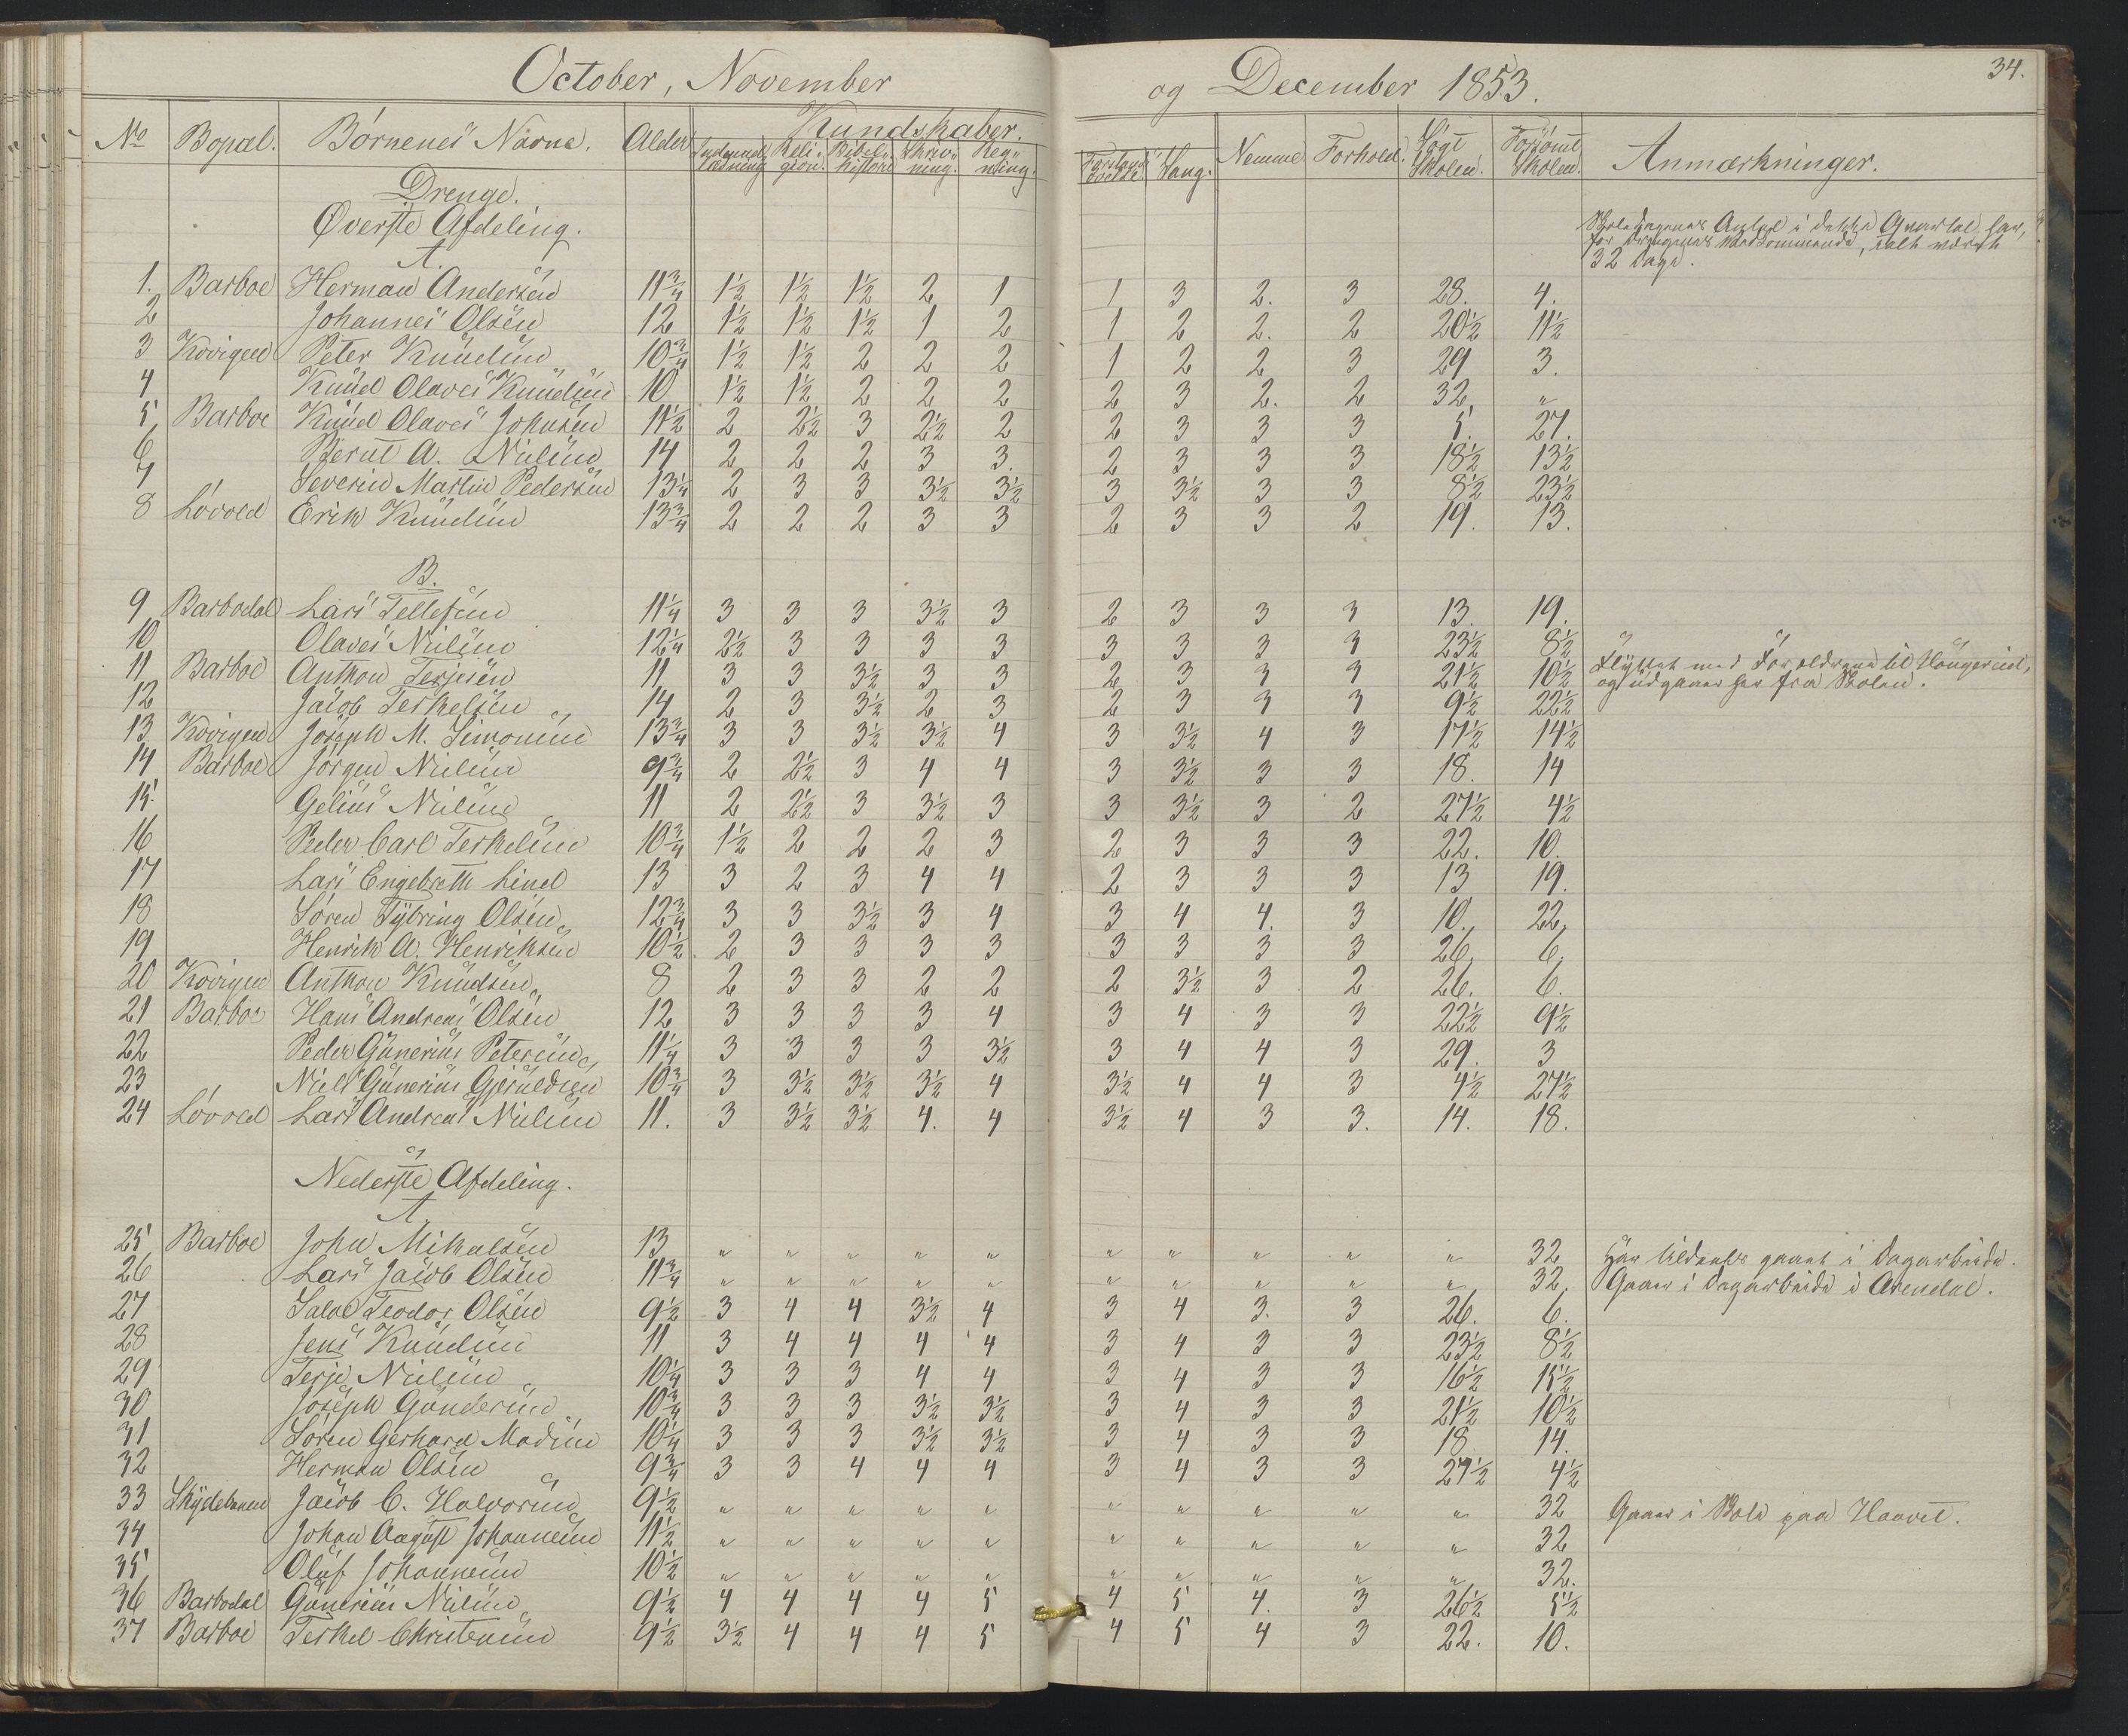 October, November og December 1853. 34.
No Bopæl. Børnenes Navne. Alder Kundskaber. Nemme Forhold. Søgt Skolen. Forsømt Skolen. Anmærkninger.
Religion. Bibelhistorie Skrivning. Regning. Sang.
Drenge.
Øverste Afdeling.
A.
Skoledagenes Antal i dette Qvartal har, for Drengenes Vedkommende, ialt været 32 Dage.
1. Barboe Herman Andersen 11 3/4 1 1/2 1 1/2 1 1/2 2 1 1 3 2. 3 28. 4.
2 Johannes Olsen 12 1 1/2 1 1/2 1 1/2 1 2 1 2 2. 2 20 1/2 11 1/2
3 Kovigen Peter Knudsen 10 3/4 1 1/2 1 1/2 2 2 2 1 2 2 3 29 3.
4 Knud Olaves Knudsen 10 1 1/2 1 1/2 2 2 2 2 3 2. 2 32 "
5 Barboe Knud Olaves Johnsen 11 1/2 2 2 1/2 3 2 1/2 2 2 3 3 3 5. 27.
6 Bernt A. Nielsen 14 2 2 2 3 3. 2 3 3 3 18 1/2 13 1/2
7 Severin Martin Pedersen 13 1/4 2 3 3 3 1/2 3 1/2 3 3 1/2 3 3 8 1/2 23 1/2
8 Løvold Erik Knudsen 13 3/4 2 2 2 3 3 2 3 3 2 19. 13.
B.
9 Barbodal Lars Tellefsen 11 1/4 3 3 3 3 1/2 3 2 3 3 3 13. 19.
10 Olaves Nielsen 12 1/4 2 1/2 3 3 3 3 3 3 3 3 23 1/2 8 1/2
11 Barboe Anthon Terjesen 11 3 3 3 1/2 3 3 2 3 3 3 21 1/2 10 1/2 Flyttet med Forældrene til Houger,
12 Jacob Terkelsen 14 2 3 3 1/2 2 3 2 3 3 3 9 1/2 22 1/2 og udgaaer her fra Skolen.
13 Kovigen Joseph M. Simonsen 13 3/4 3 3 3 1/2 3 1/2 4 3 3 1/2 4 3 17 1/2 14 1/2
14 Barboe Jørgen Nielsen 9 3/4 2 2 1/2 3 4 4 3 3 1/2 3 3 18. 14
15. Gelius Nielsen 11 2 2 1/2 3 3 1/2 3 3 3 1/2 3 2 27 1/2 4 1/2
16 Peder Carl Terkelsen 10 3/4 1 1/2 2 2 2 3 2 3 3 3 22. 10.
17 Lars Engebreth Lind 13 3 2 3 4 4 2 3 3 3 13 19.
18 Søren Tybring Olsen 12 3/4 3 3 3 1/2 3 4 3 4 4. 3 10. 22.
19 Henrik A. Henriksen 10 1/2 2 3 3 3 3 3 3 3 3 26. 6.
20 Kovigen Anthon Knudsen 8 2 3 3 2 2 2 3 1/2 3 2 26. 6.
21 Barboe Hans Andreas Olsen 12 3 3 3 3 4 3 4 3 3 22 1/2 9 1/2
22 Peder Gunerius Petersen 11 1/4 3 3 3 3 3 1/2 3 4 4 3 29. 3
23 Niels Gunerius Gjeruldsen 10 3/4 3 3 1/2 3 1/2 3 1/2 4 3 1/2 4 4 3 4 1/2 27 1/2
24 Løvold Lars Andreas Nielsen 11. 3 3 1/2 3 1/2 4. 4 3 1/2 4 3 3. 14. 18.
Nederste Afdeling.
A.
25 Barboe John Mikalsen 13 " " " " " " " " " " 32 Har tildeels gaaet i Dagarbeide.
26 Lars Jacob Olsen 11 3/4 " " " " " " " " " " 32. Gaaer i Dagarbeide i Arendal.
27 Salve Teodor Olsen 9 1/2 3 4 4 3 1/2 4 3 4 3. 3 26. 6.
28 Jens Knudsen 11 3 4 4 4 4 3 4 3 3 23 1/2 8 1/2
29 Terje Nielsen 10 1/4 3 3 3 4 4 3 4 3 3 16 1/2 15 1/2
30 Joseph Gundersen 10 3/4 3 3 3 3 1/2 3 1/2 3 4 3 3 21 1/2 10 1/2
31 Søren Gerhard Madsen 10 1/4 3 3 3 3 1/2 3 1/2 3 4 3 3 18 14.
32 Herman Olsen 9 3/4 3 3 4 4 4 3 4 3 3 27 1/2 4 1/2
33 Skydebanen Jacob C. Halvorsen 9 1/2 " " " " " " " " " " 32 Gaaer i Skole paa
34 Johan August Johannesen 11 1/2 " " " " " " " " " " 32
35 Oluf Johannesen 10 1/2 " " " " " " " " " " 32.
36 Barbodal Gunerius Nielsen 9 1/2 4 4 4 4 5 4 5 4. 3 26 1/2 5 1/2
37 Barboe Terkel Christensen 9 1/2 3 1/2 4 4 4 5 4 5 4 3 22. 10.